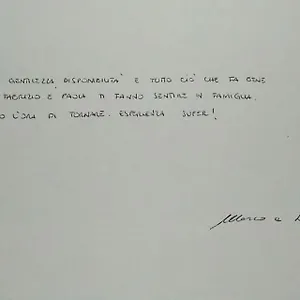 GENTILEZZA DISPONIBILITÀ E TUTTO CIÒ CHE FA BENE
FABRIZIO E PAOLA TI FANNO SENTIRE IN FAMIGLIA.
L'ORA DI TORNARE. ESPERIENZA SUPER!
Marco e